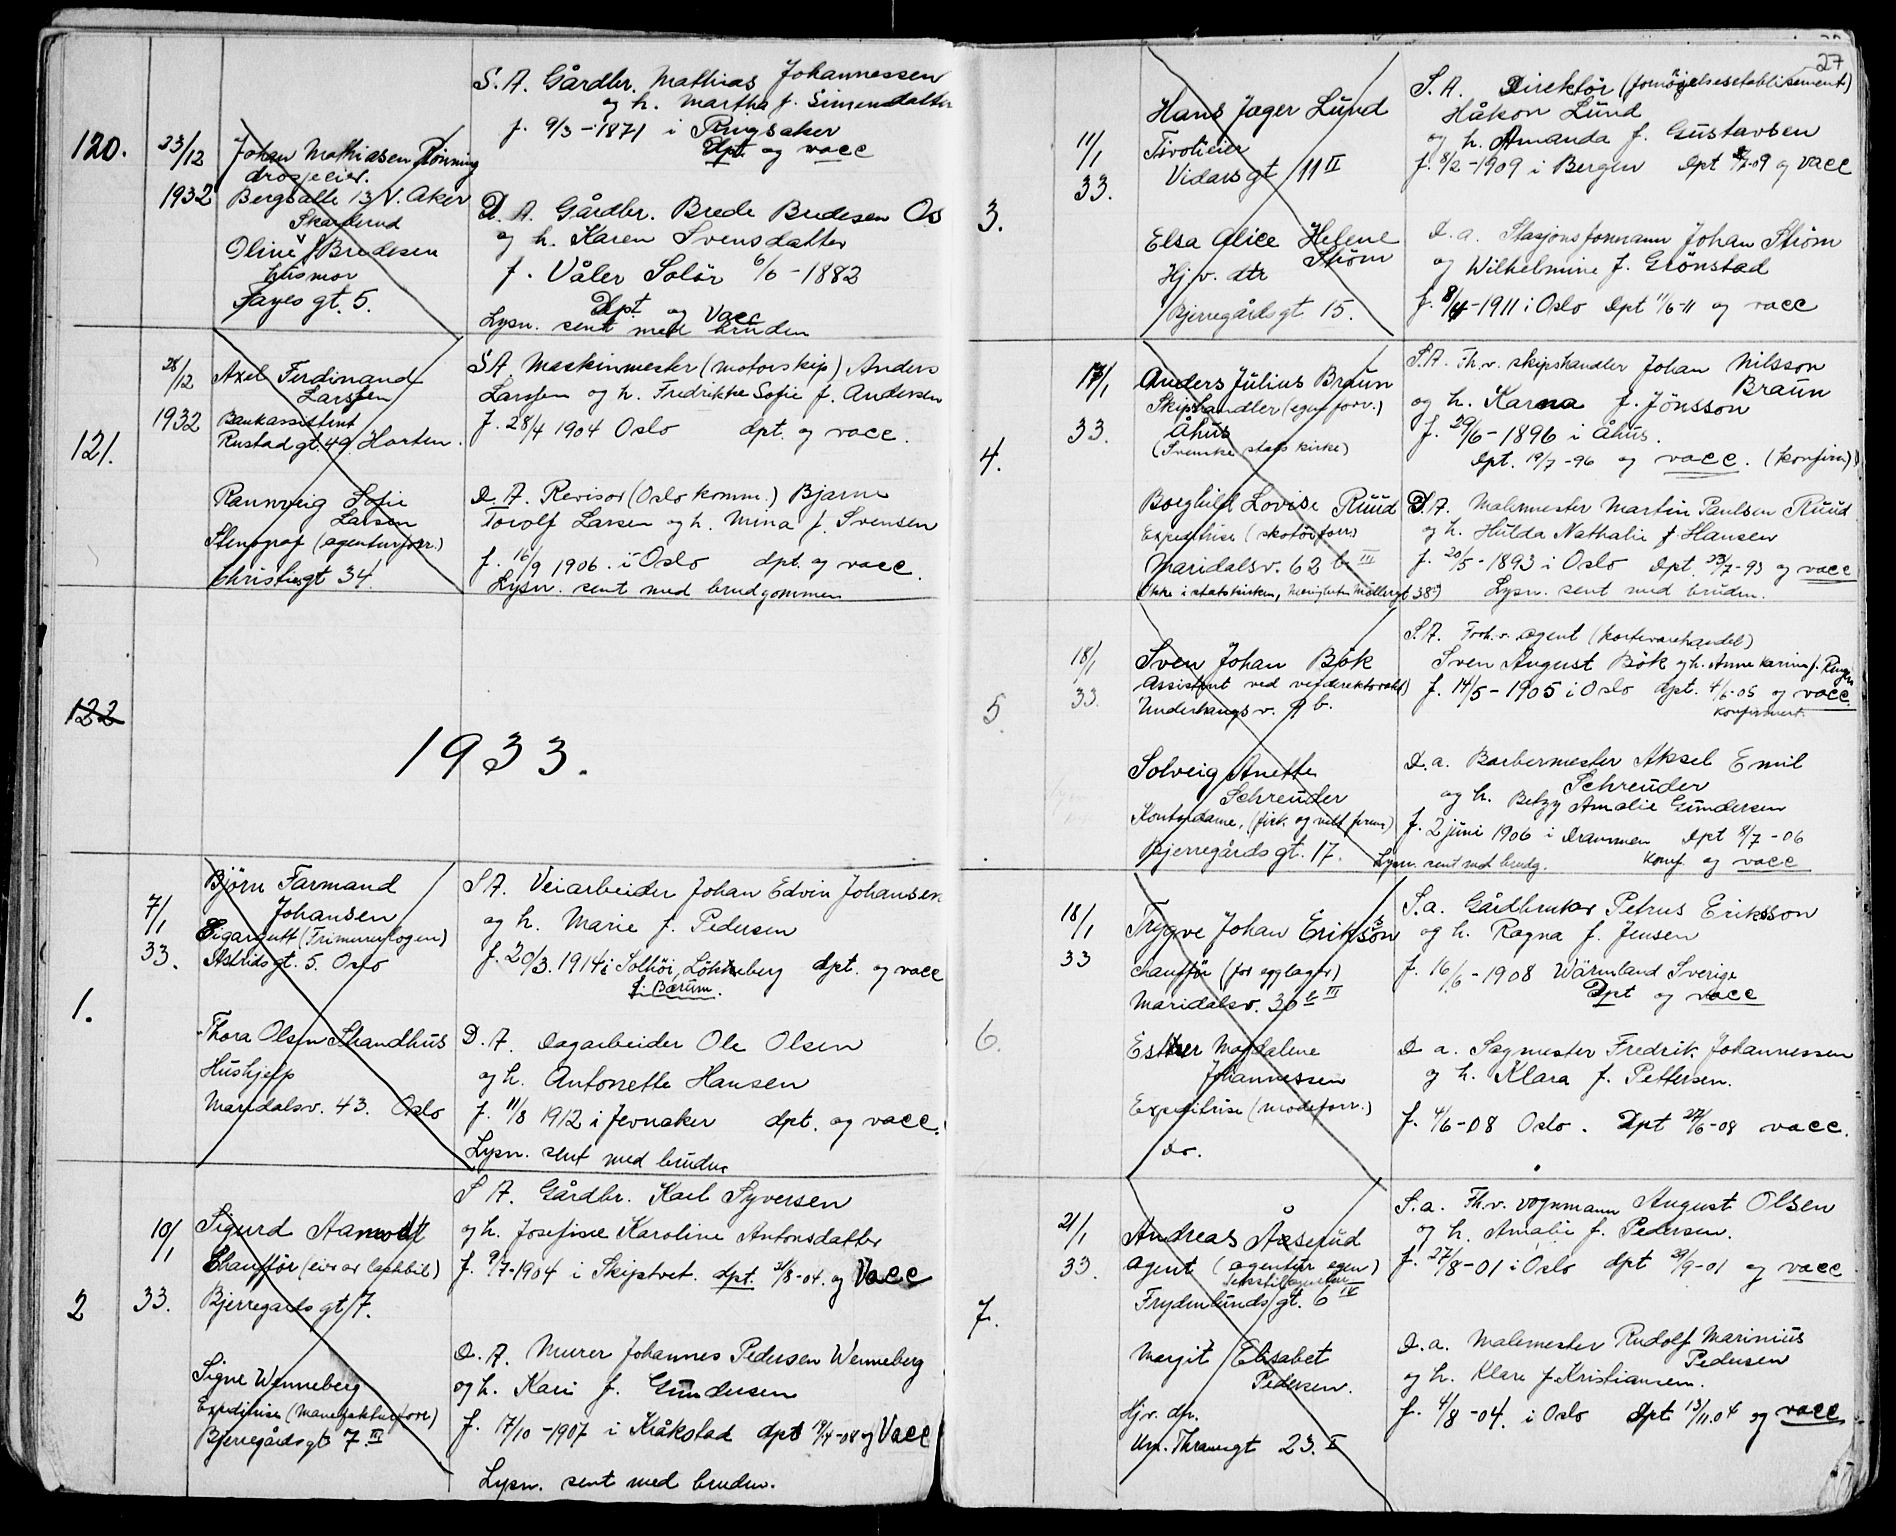 120.
23/12
1932
Johan Mathiasen Rønning
drosjeeier.
Bergsalle 13 V. Aker
Skarderud
Oline f. Bredesen
husmor
Fayes gt. 5.
S. A. Gårdbr. Mathias Johannessen
og h. Martha f. Simensdatter
f. 9/3-1871 i Ringsaker
Dpt. og vacc
D. A. Gårdbr. Brede Bredesen Os
og h. Karen Svensdatter
f. Våler Solør 6/6-1882
Dpt. og Vacc
Lysn. sent med bruden
121.
28/12
1932
Axel Ferdinand
Larssen
Bankassistent
Rustad gt. 49. Horten.
Rannveig Sofie
Larsen
Stenograf (agenturforr.)
Christiesgt 34.
S A. Maskinmester (motorskip) Anders
Larssen og h. Fredrikke Sofie f. Andersen
f. 28/4 1904 Oslo dpt. og vacc.
D. A. Revisor (Oslo komm.) Bjarne
Torolf Larsen og h. Mina f. Svensen
f. 16/9 1906. i Oslo dpt. og vacc.
Lysn. sent med brudgommen
122
1933.
1.
7/1
33.
Bjørn Farmand
Johansen
Sigargutt (Frimurerlogen)
Astridsgt. 5. Oslo
Thora Olsen Strandhus
Hushjelp
Maridalsv. 43. Oslo
S A. Veiarbeider Johan Edvin Johansen
og h. Marie f. Pedersen
f. 20/3. 1914 i Solhöi, Lökkeberg dpt. og vacc
i Bærum.
D. A. Dagarbeider Ole Olsen
og h. Antonette Hansen
f. 11/8 1912 i Jevnaker dpt. og vacc.
Lysn. sent med bruden
2
10/1
33.
Sigurd Aamodt
Chauffør (eier av lastebil)
Bjerregårds gt. 7.
Signe Wenneberg
Expeditrise (Manufakturforr.)
Bjerregårdsgt 7 III
S A. Gårdbr. Karl Syversen
og h. Josefine Karoline Antonsdatter
f. 9/7-1904 i Skiptvet. dpt. 21/8-04. og Vacc
D. A. Murer Johannes Pedersen Wenneberg
og h. Kari f. Gundersen
f. 17/10-1907 i Kråkstad dpt 19/4-08 og Vacc
Lysn. sent med bruden.
27
3.
11/1
33.
Hans Jæger Lund
Tivolieier
Vidars gt 11 II
Elsa Alice Helene
Strøm
Hj v. dtr
Bjerregårdsgt 15.
S. A. Direktör (fornöyelsesetablisement)
Håkon Lund
og h. Amanda f. Gustavsen
f. 8/2-1909 i Bergen dpt -09 og vacc
D. a. Stasjonsformann Johan Strøm
og Wilhelmine f. Grönstad
f. 8/4-1911 i Oslo dpt 11/6-11 og vacc
4.
17/1
33.
Anders Julius Braun
Skipshandler (egen forr.)
Åhus
(Svenske stats kirke)
Borghild Lovise Ruud
Expeditrise (skotöiforr)
Maridalsv. 62 b III
(Ikke i statskirken, Menigheten Möllergt 38)
S. A. Fh.v. skipshandler Johan Nilsson
Braun
og h. Karna f. Jönsson
f. 29/6-1896 i Åhus.
dpt. 19/7-96 og vacc. (konfirm)
D. A. Malermester Martin Paulsen Ruud
og h. Hulda Nathalie f. Hansen
f. 20/5-1893 i Oslo dpt. 23/7-93 og vacc
Lysn. sent med bruden.
5
18/1
33.
Sven Johan Bök
Assistent ved veidirektoratet)
Underhaugsv. 9 b.
Solveig Anette
Schreuder
Kontordame,
Bjerregårdsgt. 17.
S. A. Forh.v. agent (kortevarehandel)
Sven August Bök og h. Anne Karine f.
f. 14/5-1905 i Oslo dpt. 4/6-05 og vacc.
konfirmert.
D. a. Barbermester Aksel Emil
Schreuder
og h. Betzy Amalie Gundersen
f. 2 juni 1906 i Drammen dpt 8/7-06
Lysn. sent med brudg. Konf. og vacc
6.
18/1
33
Trygve Johan Eriksson
chauffør (for egglager)
Maridalsv. 30 b III
Esther Magdalene
Johannessen
Expeditrise (moteforr.)
do.
S. a. Gårdbruker Petrus Eriksson
og h. Ragna f. Jensen
f. 16/6-1908 Wärmland Sverige
Dpt og vacc
D a. Sagmester Fredrik Johannessen
og h. Klara f. Pettersen.
f. 4/6-08 Oslo. Dpt 28/6-08 vacc.
7.
21/1
33.
Andreas Åserud
agent (agentur egen)
Tekstilagentur
Frydenlunds gt. 6 IV
Margit Elisabet
Pedersen.
Hj v. dtr.
M. Thranesgt 23. I
S. a. Fh.v. vognmann August Olsen
og h. Amalie f. Pedersen.
f. 27/8-01 i Oslo dpt 29/9-01 og vacc
D. a. Malemester Rudolf Marinius
Pedersen
og h. Klara f. Kristiansen.
f. 4/8-04. i Oslo dpt 13/11.04 og vacc